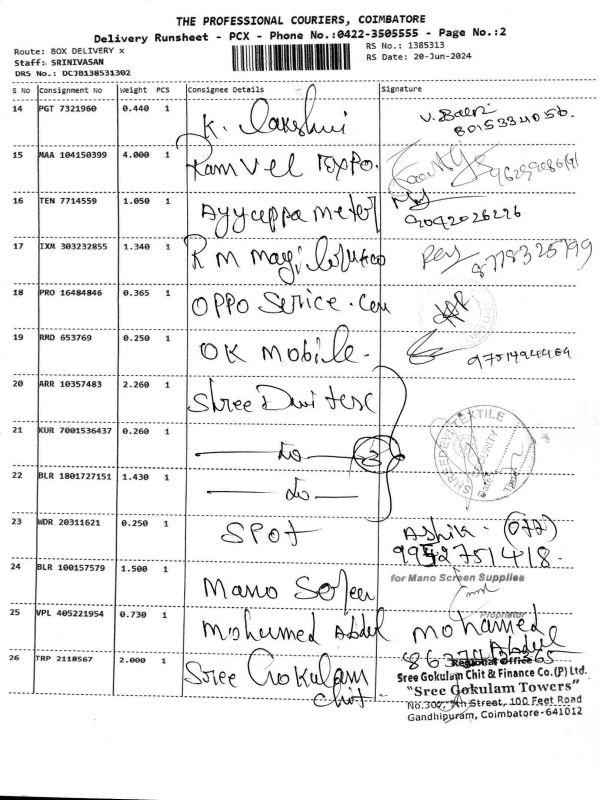 THE PROFESSIONAL COURIERS, COIMBATORE
Delivery Runsheet - PCX - Phone No.:0422-3505555 - Page No.:2
Route: BOX DELIVERY x
RS No.: 1385313
Staff: SRINIVASAN
RS Date: 20-Jun-2024
DRS No.: DCJB138531302
S No Consignment No Weight PCS Consignee Details Signature
14 PGT 7321960 0.440 1 K. Lakshmi
8015334056.
15 MAA 104150399 4.000 1 Ramvel Expo.
16 TEN 7714559 1.050 1 Ayyappa meter
9092026226
17 IXM 303232855 1.340 1 R M magi
8778325799
18 PRO 16484846 0.365 1 OPPO Serice . Cen
19 RMD 653769 0.250 1 OK mobile.
9751494969
20 ARR 10357483 2.260 1 Shree Devi Texc
21 KUR 7001536437 0.260 1 do 3
SHREEDEVI TEXTILE
SECURITY
Date:
22 BLR 1801727151 1.430 1 do
23 WDR 20311621 0.250 1 SPOT Ashik.
9952751418.
24 BLR 100157579 1.500 1 Mano
for Mano Screen Supplies
Proprietor
25 VPL 405221954 0.730 1 Mohumed Abdul mohamed
Abdul
26 TRP 2118567 2.000 1 Sree Gokulam
Chit
Regional Office
Sree Gokulam Chit & Finance Co.(P) Ltd.
"Sree Gokulam Towers"
No.300, 9th Street, 100 Feet Road
Gandhipuram, Coimbatore-641012